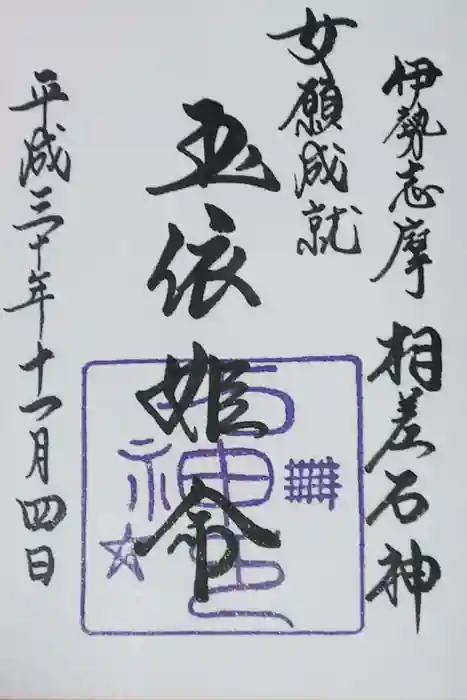 伊勢志摩 相差石神
女願成就
玉依姫命
平成三十年十一月四日